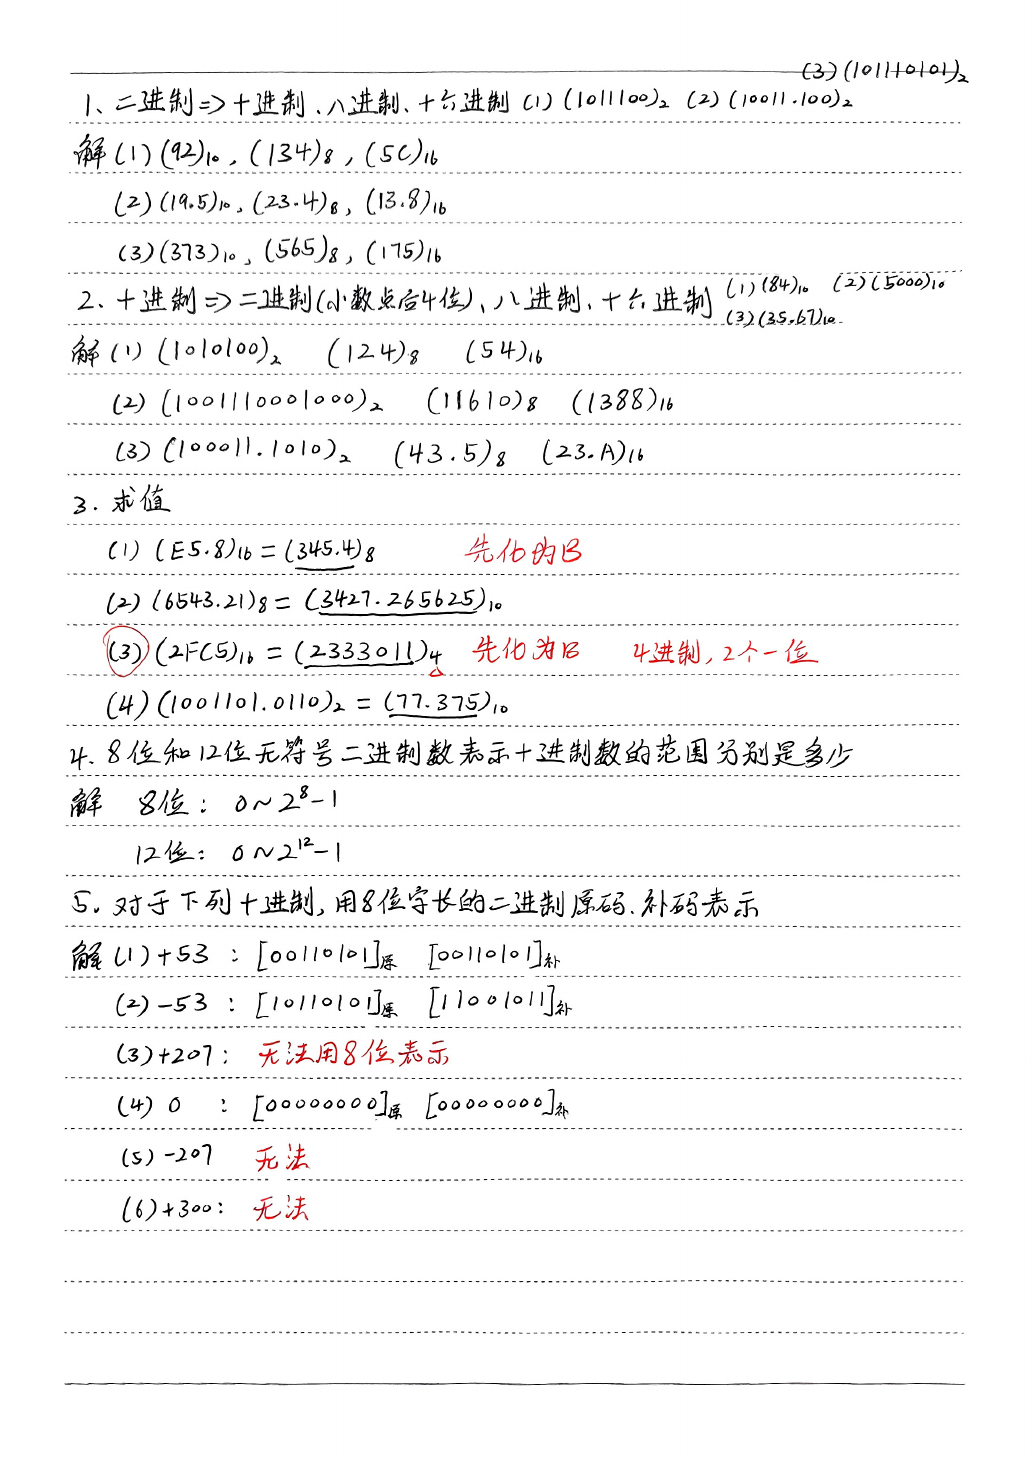 (3)(101110101)₂
1、二进制=>十进制、八进制、十六进制 (1)(1011100)₂ (2)(10011.100)₂
解(1)(92)₁₀, (134)₈, (5C)₁₆
(2)(19.5)₁₀, (23.4)₈, (13.8)₁₆
(3)(373)₁₀, (565)₈, (175)₁₆
2、十进制=>二进制(小数点后4位)、八进制、十六进制 (1)(84)₁₀ (2)(5000)₁₀
(3)(35.67)₁₀
解(1)(1010100)₂ (124)₈ (54)₁₆
(2)(1001110001000)₂ (11610)₈ (1388)₁₆
(3)(100011.1010)₂ (43.5)₈ (23.A)₁₆
3. 求值
(1)(E5.8)₁₆=(345.4)₈ 先化为B
(2)(6543.21)₈=(3427.265625)₁₀
(3)(2FC5)₁₆=(2333011)₄ 先化为B 4进制,2个一位
(4)(1001101.0110)₂=(77.375)₁₀
4、8位和12位无符号二进制数表示十进制数的范围分别是多少
解 8位: 0~2⁸-1
12位: 0~2¹²-1
5、对于下列十进制,用8位字长的二进制原码、补码表示
解(1)+53 : [00110101]原 [00110101]补
(2)-53 : [10110101]原 [11001011]补
(3)+207: 无法用8位表示
(4) 0 : [00000000]原 [00000000]补
(5)-207 无法
(6)+300: 无法